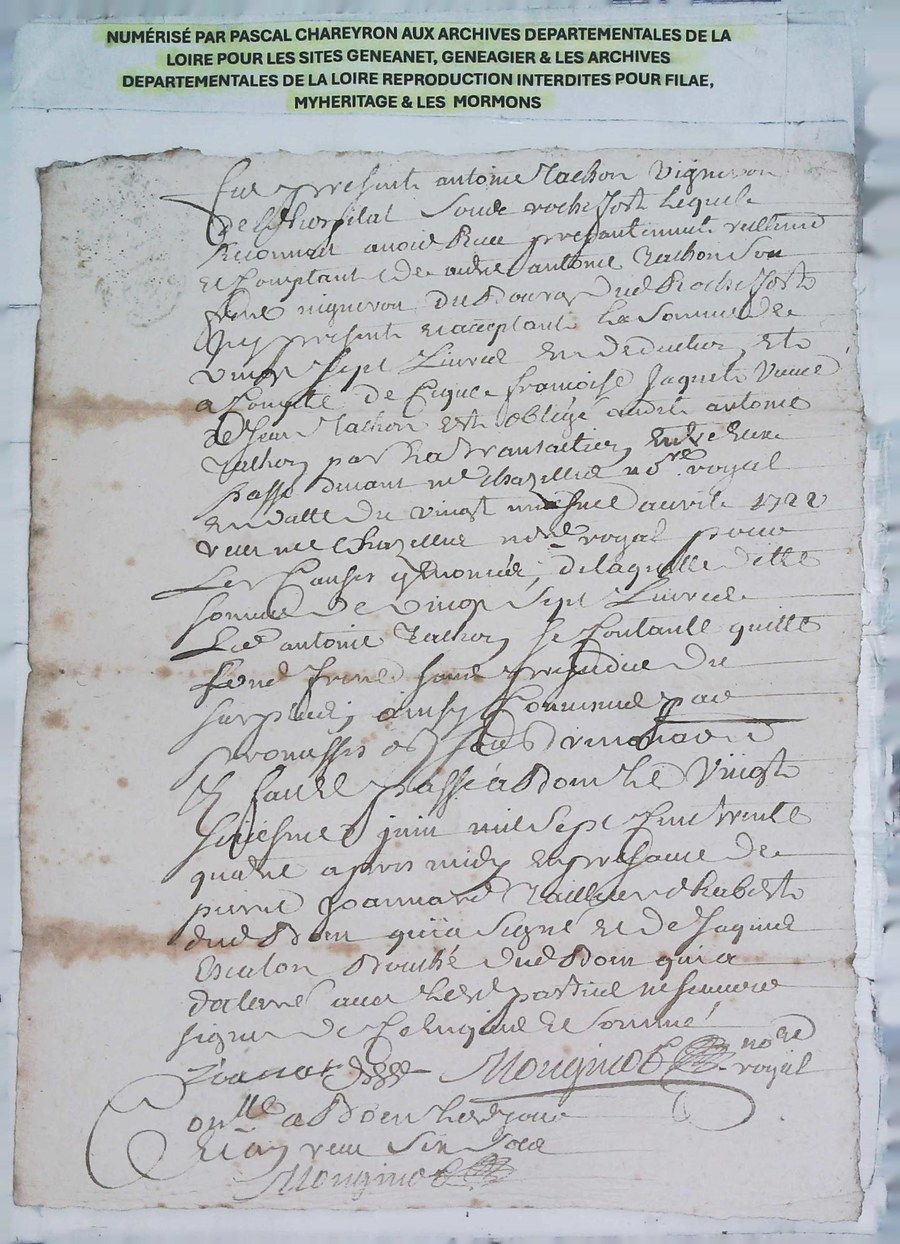 NUMÉRISÉ PAR PASCAL CHAREYRON AUX ARCHIVES DEPARTEMENTALES DE LA
LOIRE POUR LES SITES GENEANET, GENEAGIER & LES ARCHIVES
DEPARTEMENTALES DE LA LOIRE REPRODUCTION INTERDITES POUR FILAE,
MYHERITAGE & LES MORMONS
fut present antoine Tachon vigneron
de Lhospital Soude rochefort Lequel
Reconnoit avoir Receu presantement reellemt
et Comptant de autre antoine Tachon Son
frere vigneron du Bourg dud Rochefort
Icy present et acceptant La Somme de
vingt sept Livres en deduction et
a Compte de françoise Jaquet veuve
de Jean Tachon est obligé audit antoine
Tachon par La transaction entre Eux
passé devant me Chazelles nore royal
en datte du vingt aavril 1722
receu me Chazelles nore royal pour
Les Causes y Enoncés, de laquelle ditte
somme de vingt sept Livres
Led antoine Tachon se Contante quitte
Sond frere sans prejudice du
surplus, ainsy Convenu par
promesses obs renonand
Et Clause passé a Boen Le vingt
juin mil Sept Cent trente
quatre apres midy en presance de
pierre Joannard Tailleur dhabits
dud Boen qui a signé et de Jaques
Escalon dud Boen qui a
declaré avec Lesd parties ne scavoir
signer de Ce Enquis et sommé
Mongino nore
royal
onlle a Boen Led jour
Et an receu six sols
Mongino